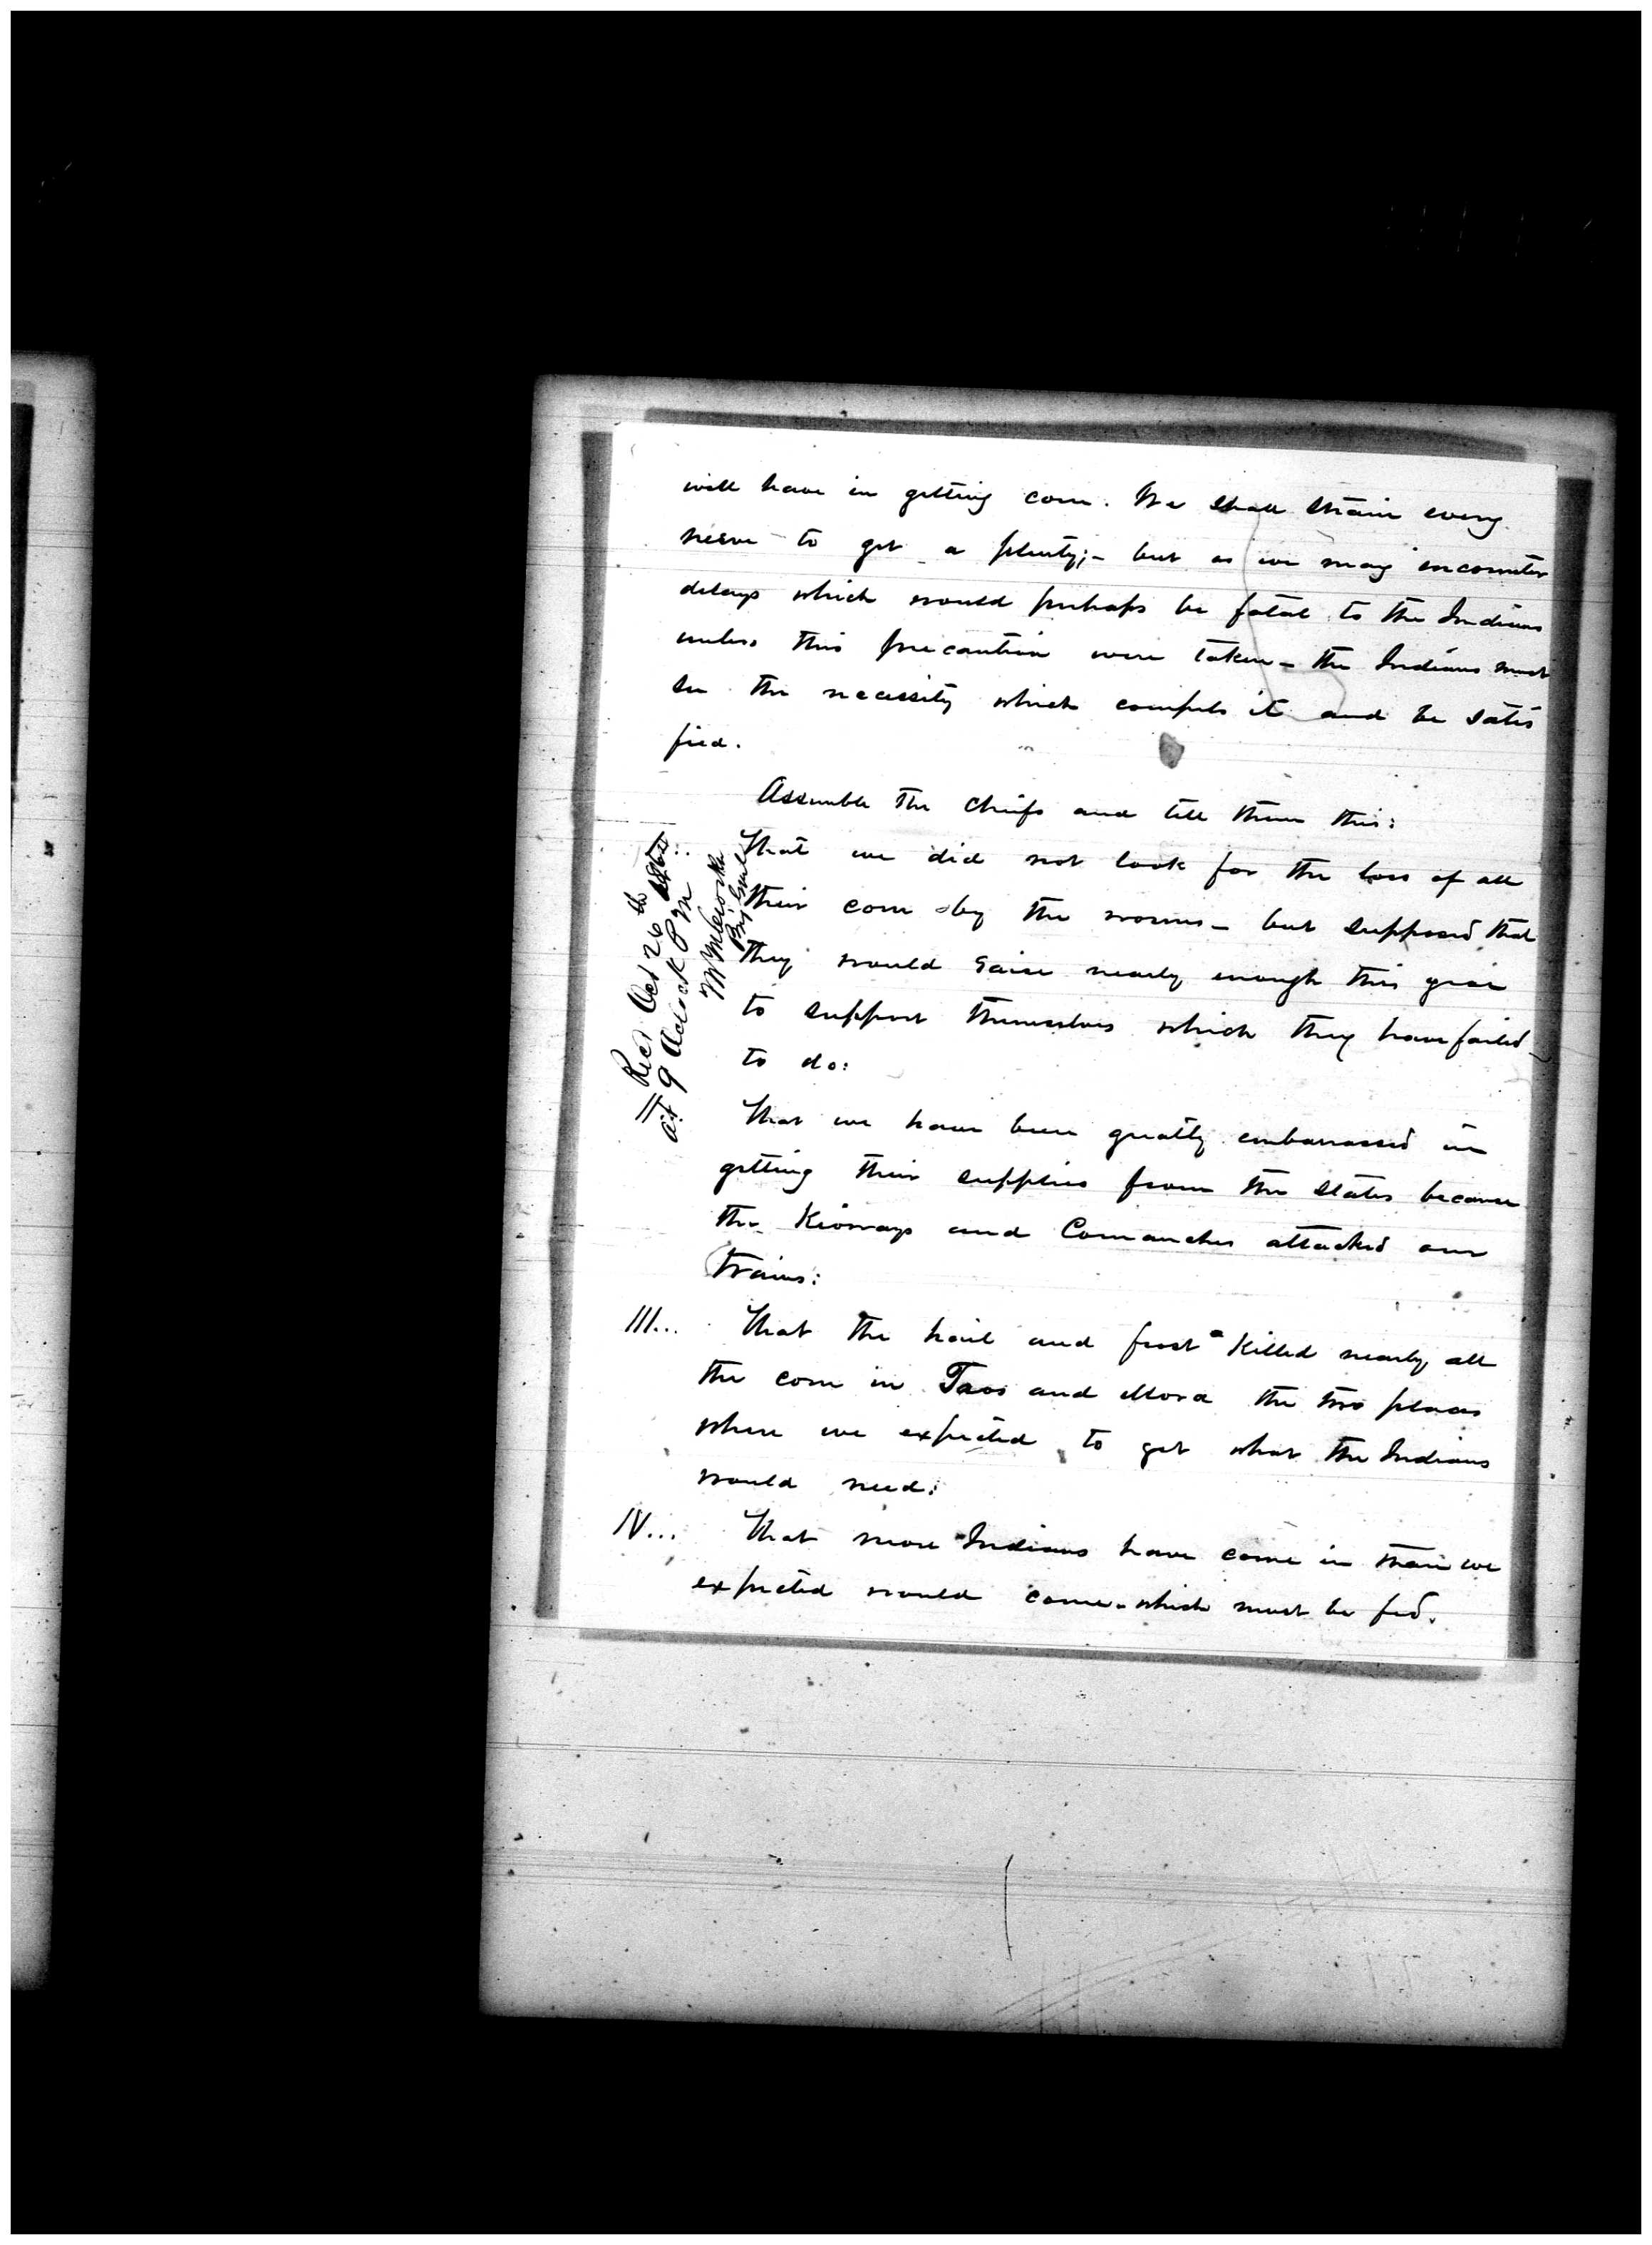 will have in getting corn. We shall strain every
nerve to get a plenty;- but as we may encounter
delays which would perhaps be fatal to the Indians
unless this precaution were taken - the Indians must
see the necessity which compels it and be satis
fied.
Assemble the Chiefs and tell them this:
That we did not look for the loss of all
their corn by the worms - but supposed that
they would raise nearly enough this year
to support themselves which they have failed
to do:
Recd Oct 26th
at 9 Oclock P M
Brig Genl
That we have been greatly embarrassed in
getting their supplies from the States because
the Kioways and Comanches attacked our
trains:
III... That the hail and frost killed nearly all
the corn in Taos and Mora the two places
where we expected to get what the Indians
would need:
IV... That more Indians have come in than we
expected would come - which must be fed.